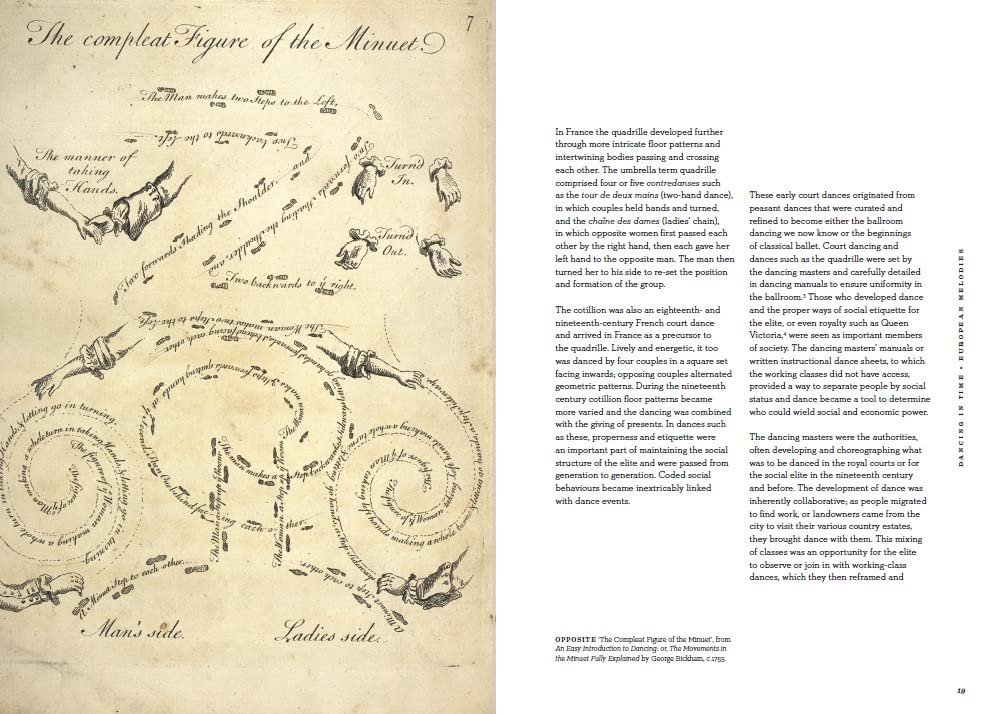 7
The compleat Figure of the Minuet.
The Man makes two Steps to the Left,
Two backwards to the left.
The manner of
taking
Hands.
Turn'd
In.
Turn'd
Out.
Two forwards Shading the Shoulder, and
Two forwards Shading the Shoulder, and
Two backwards to yͤ right.
The Woman makes two Steps to the Left,
A Minuet Step to each other.
Man's side.
Ladies side.
In France the quadrille developed further
through more intricate floor patterns and
intertwining bodies passing and crossing
each other. The umbrella term quadrille
comprised four or five contredanses such
as the tour de deux mains (two-hand dance),
in which couples held hands and turned,
and the chaîne des dames (ladies' chain),
in which opposite women first passed each
other by the right hand, then each gave her
left hand to the opposite man. The man then
turned her to his side to re-set the position
and formation of the group.
The cotillion was also an eighteenth- and
nineteenth-century French court dance
and arrived in France as a precursor to
the quadrille. Lively and energetic, it too
was danced by four couples in a square set
facing inwards; opposing couples alternated
geometric patterns. During the nineteenth
century cotillion floor patterns became
more varied and the dancing was combined
with the giving of presents. In dances such
as these, properness and etiquette were
an important part of maintaining the social
structure of the elite and were passed from
generation to generation. Coded social
behaviours became inextricably linked
with dance events.
OPPOSITE 'The Compleat Figure of the Minuet', from
An Easy Introduction to Dancing: or, The Movements in
the Minuet Fully Explained by George Bickham, c.1755.
These early court dances originated from
peasant dances that were curated and
refined to become either the ballroom
dancing we now know or the beginnings
of classical ballet. Court dancing and
dances such as the quadrille were set by
the dancing masters and carefully detailed
in dancing manuals to ensure uniformity in
the ballroom.³ Those who developed dance
and the proper ways of social etiquette for
the elite, or even royalty such as Queen
Victoria,⁴ were seen as important members
of society. The dancing masters' manuals or
written instructional dance sheets, to which
the working classes did not have access,
provided a way to separate people by social
status and dance became a tool to determine
who could wield social and economic power.
The dancing masters were the authorities,
often developing and choreographing what
was to be danced in the royal courts or for
the social elite in the nineteenth century
and before. The development of dance was
inherently collaborative; as people migrated
to find work, or landowners came from the
city to visit their various country estates,
they brought dance with them. This mixing
of classes was an opportunity for the elite
to observe or join in with working-class
dances, which they then reframed and
DANCING IN TIME • EUROPEAN MELODIES
19